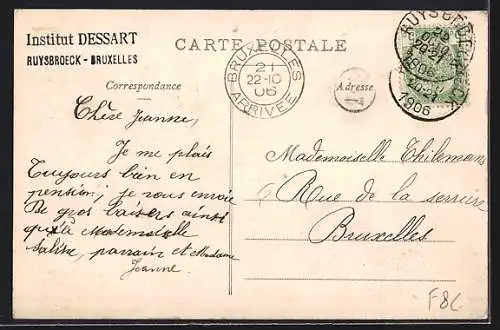 Institut DESSART
RUYSBROECK - BRUXELLES
CARTE POSTALE
BRUXELLES
21
22-10
06
ARRIVEE
1906
1906
Correspondance
Adresse
Chère Jeanne,
Je me plais
Toujours bien en
pension; je vous envoie
De gros baisers ainsi
qu'à Mademoiselle
parrain et Madame
Jeanne.
Mademoiselle Thilemans
Rue de la serrure
Bruxelles
F8C